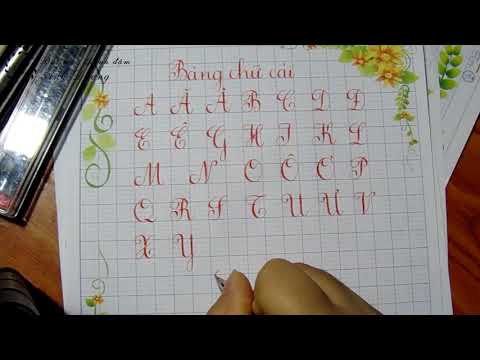 Bảng chữ cái
A Ă Â B C D Đ
E Ê G H I K L
M N O Ô Ơ P
Q R S T U Ư V
X Y